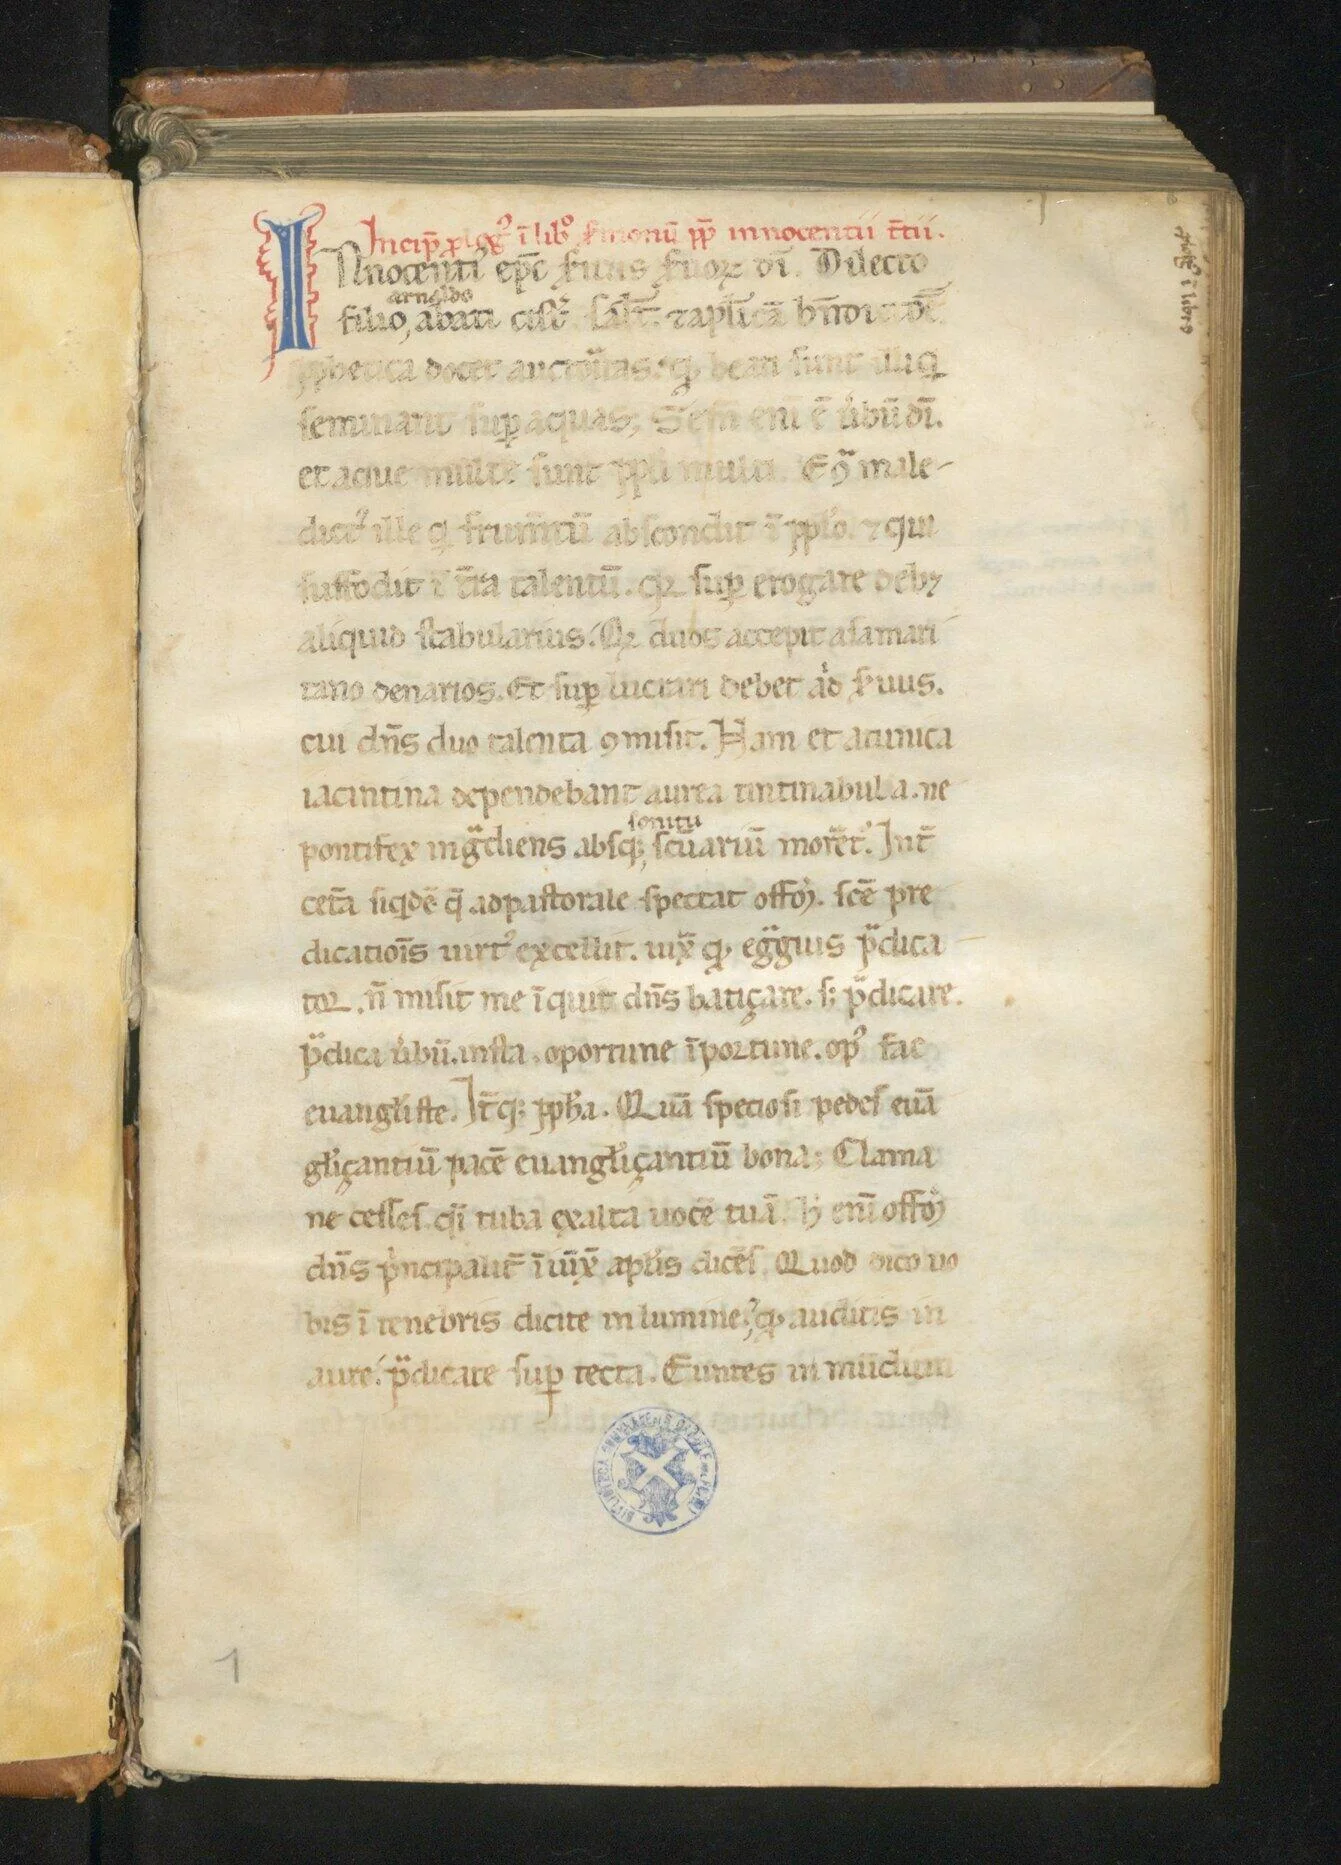 Incip̄ ꝓlogꝰ ī libº ẜmonū pp̄ innocentii t̄tii.
INnocentiꝰ ep̄c ẜuus ẜuoꝝ dī. Dilecto
arnaldo
filio, abati cist̄. salt̄. ⁊ aplicā bn̄dictōē
ꝓphetica docet auctoritas. qꝫ beati sunt illi qi
seminant suꝑ aquas; Sem̄ enī ē ủbū dī.
et aque multe sunt ppli multi. Eꝯͣ male-
dictꝰ ille qi frum̄tū abscondit ī pplo. ⁊ qui
suffodit ī t̄ra talentū. qꝛ suꝑ erogare debꝫ
aliquid stabularius. Qꝛ duos accepit a samari
tano denarios. Et suꝑ lucrari debet ad ẜuus.
cui dn̄s duo talenta ꝯmisit. Nam et a tunica
iacintina dependebant aurea tintinabula. ne
sonitu
pontifex ingͣdiens absqꝫ, sc̄uariū moret̄ᷣ. Int̄
cet̄a siqidē q̄ ad pastorale spectat offoͫ. sc̄e pre
dicatiōis uirtꝰ excellit. iuxͣ qꝫ egͣgius pͣdica
tor. n̄ misit me īquit dn̄s batiçare. sꝫ pͣdicare.
pͣdica ủbū. insta. oportune īportune. opꝰ fac
euangl̄iste. It̄qꝫ ꝓpha. Quā speciosi pedes euā
gl̄içantiū pacē euangl̄içantiū bona; Clama
ne cesses. qͣi tuba exalta uocē tuā. hͦ enī offoͫ
dn̄s pͥncipalit̄ īiūx̄ aplis dicēs. Quod dico uo
bis ī tenebris dicite in lumine. ⁊ qꝫ auditis in
aure. pͣdicate suꝑ tecta. Euntes in mūdum
BIBLIOTECA
1